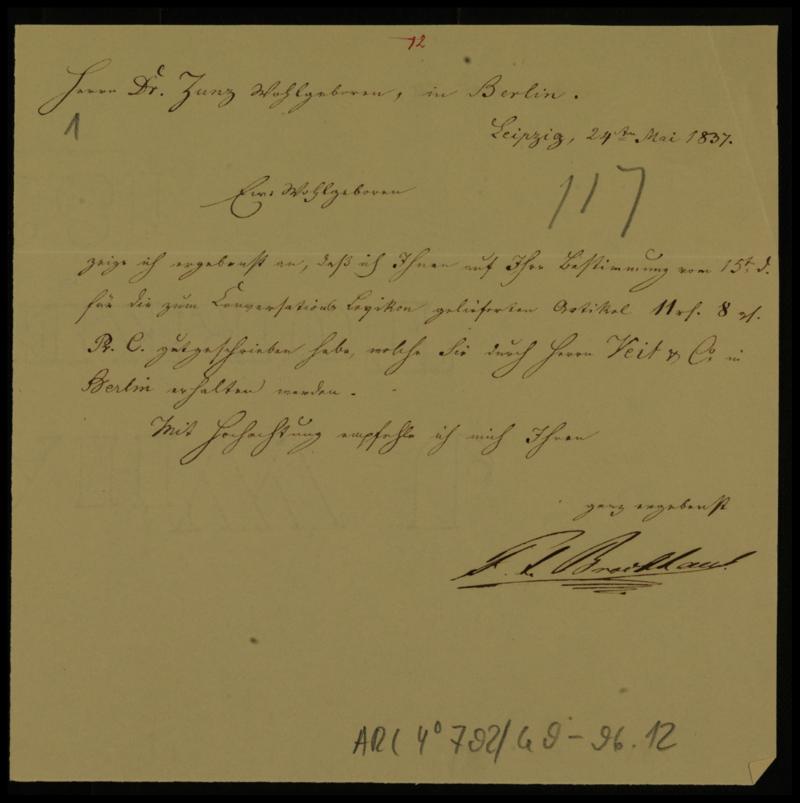 12
Herrn Dr. Zunz Wohlgeboren, in Berlin.
1
Leipzig, 24ten Mai 1837.
Ew. Wohlgeboren
117
zeige ich ergebenst an, daß ich Ihnen auf Ihre Bestimmung vom 15t. d.
für die zum Conversations Lexikon gelieferten Artikel 11 rh. 8 gr.
Pr. C. gutgeschrieben habe, welche Sie durch Herrn Veit & Co. in
Berlin erhalten werden.
Mit Hochachtung empfehle ich mich Ihnen
ganz ergebenst
F. A. Brockhaus.
ARC 4° 792/G9-96.12